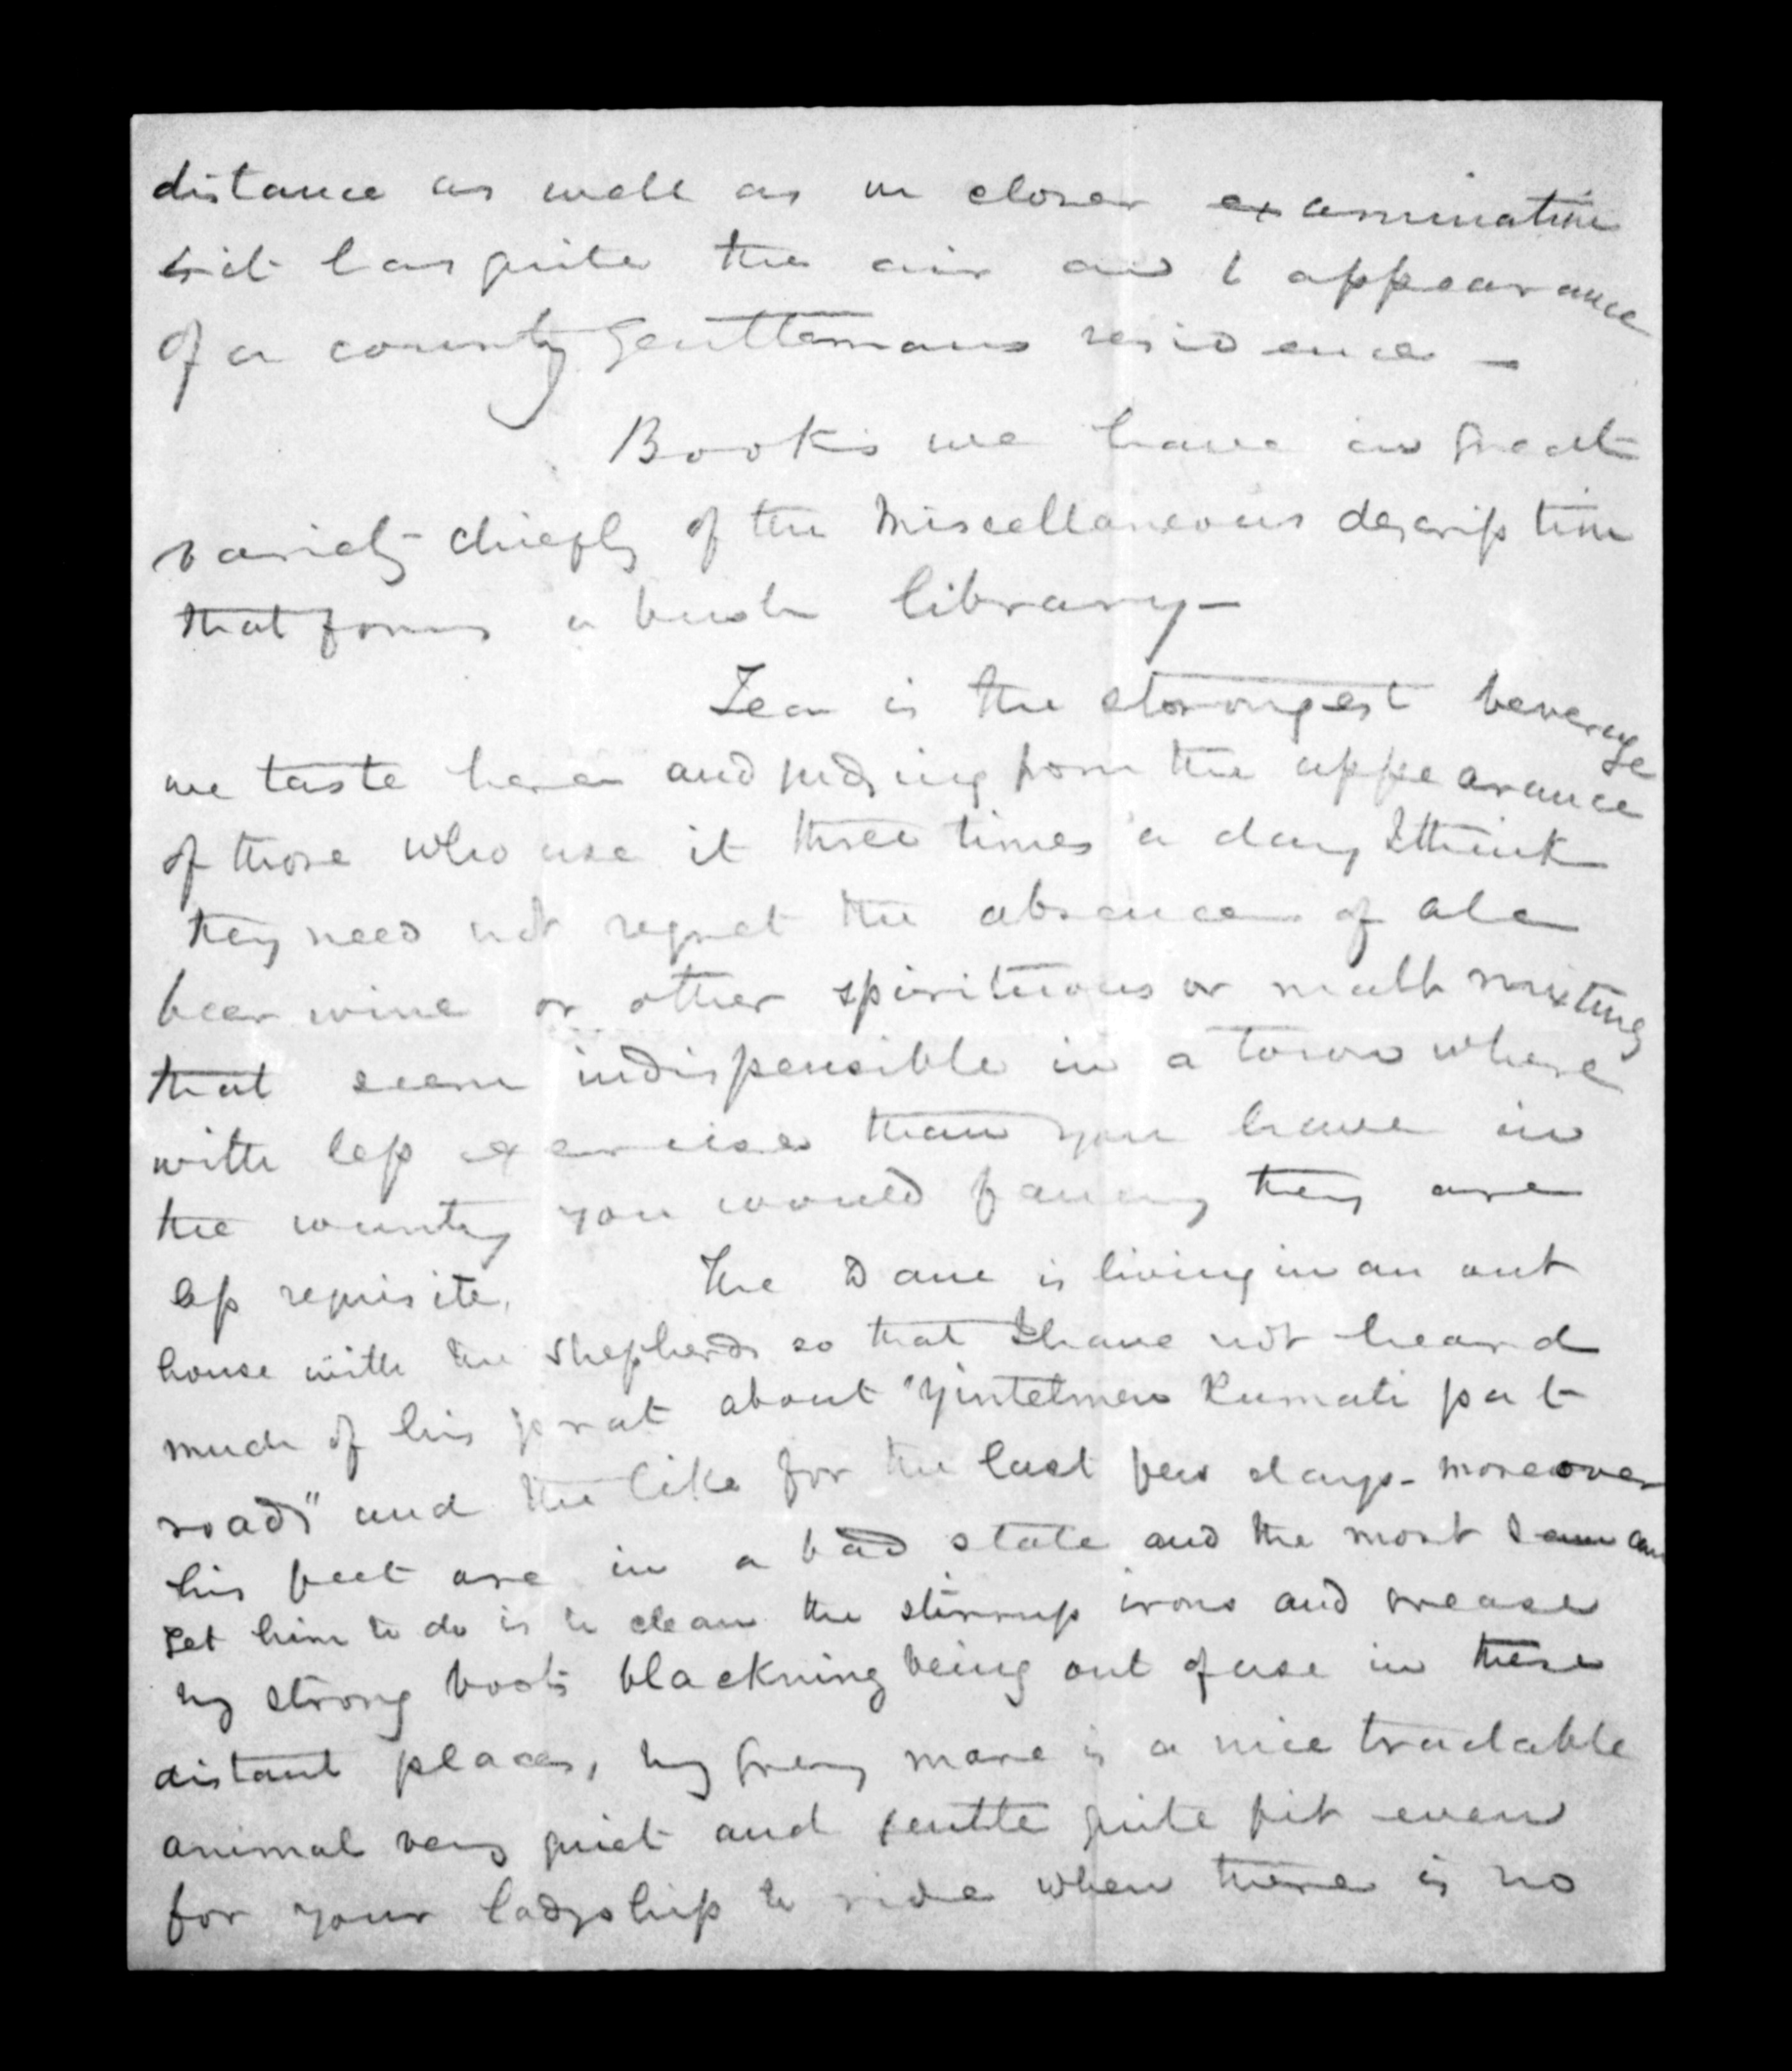 distance as well as in closer examination
it has quite the air and appearance
of a country Gentlemans residence —
Books we have in great
variety chiefly of the Miscellaneous description
that forms a bush library —
Tea is the strongest beverage
we taste here and judging from the appearance
of those who use it three times a day I think
they need not regret the absence of ale
beer wine or other spirituous or malt mixture
that seem indispensible in a town where
with less exercise than you have in
the country you would fancy they are
less requisite. The Dane is living in an out
house with the shepherds so that I have not heard
much of his prat about "Yintelmen Rumati pat
roads" and the like for the last few days - moreover
his feet are in a bad state and the most I can
get him to do is to clean the stirrup irons and grease
my strong boots blackning being out of use in these
distant places, my grey mare is a nice tractable
animal very quiet and gentle quite fit even
for your ladyship to ride when there is no